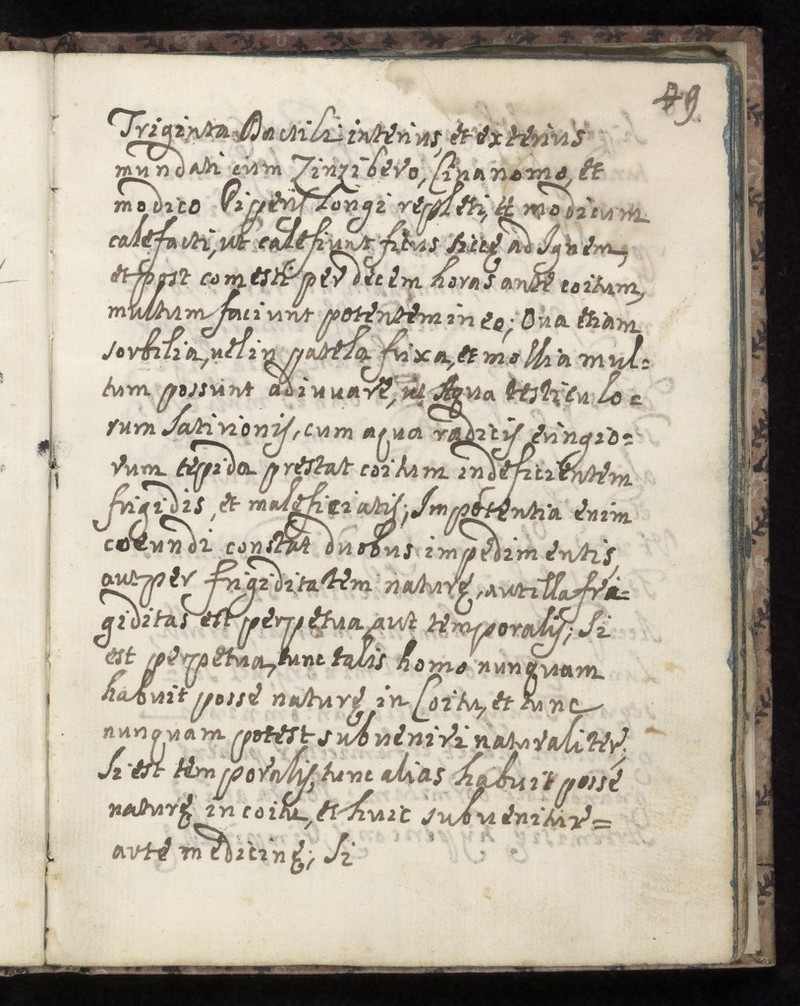 49
Triginta Dactili interius, et exterius
mundati cum Zinzibero, Cinanomo, et
modico Piperis Longi repleti, et modicum
calefacti, ut calefiunt ficus siccę ad Ignem,
et post comesti per decem horas ante coitum,
multum faciunt potentem in eo; Oua etiam
sorbilia, uel in patela frixa, et mollia mul=
tum possunt adiuuare, ut Aqua testiculo=
rum Satirionis, cum aqua radicis eringio=
rum tepida prestat coitum indeficientem
frigidis, et maleficiatis; Impotentia enim
coeundi constat duobus impedimentis,
aut per frigiditatem naturę, aut illa fri=
giditas est perpetua aut temporalis; Si
est perpetua, tunc talis homo nunquam
habuit posse naturę in Coitu, et tunc
nunquam potest subueniri naturaliter,
Si est temporalis, tunc alias habuit posse
naturę in coitu, et huic subuenitur=
arte medicinę; Si